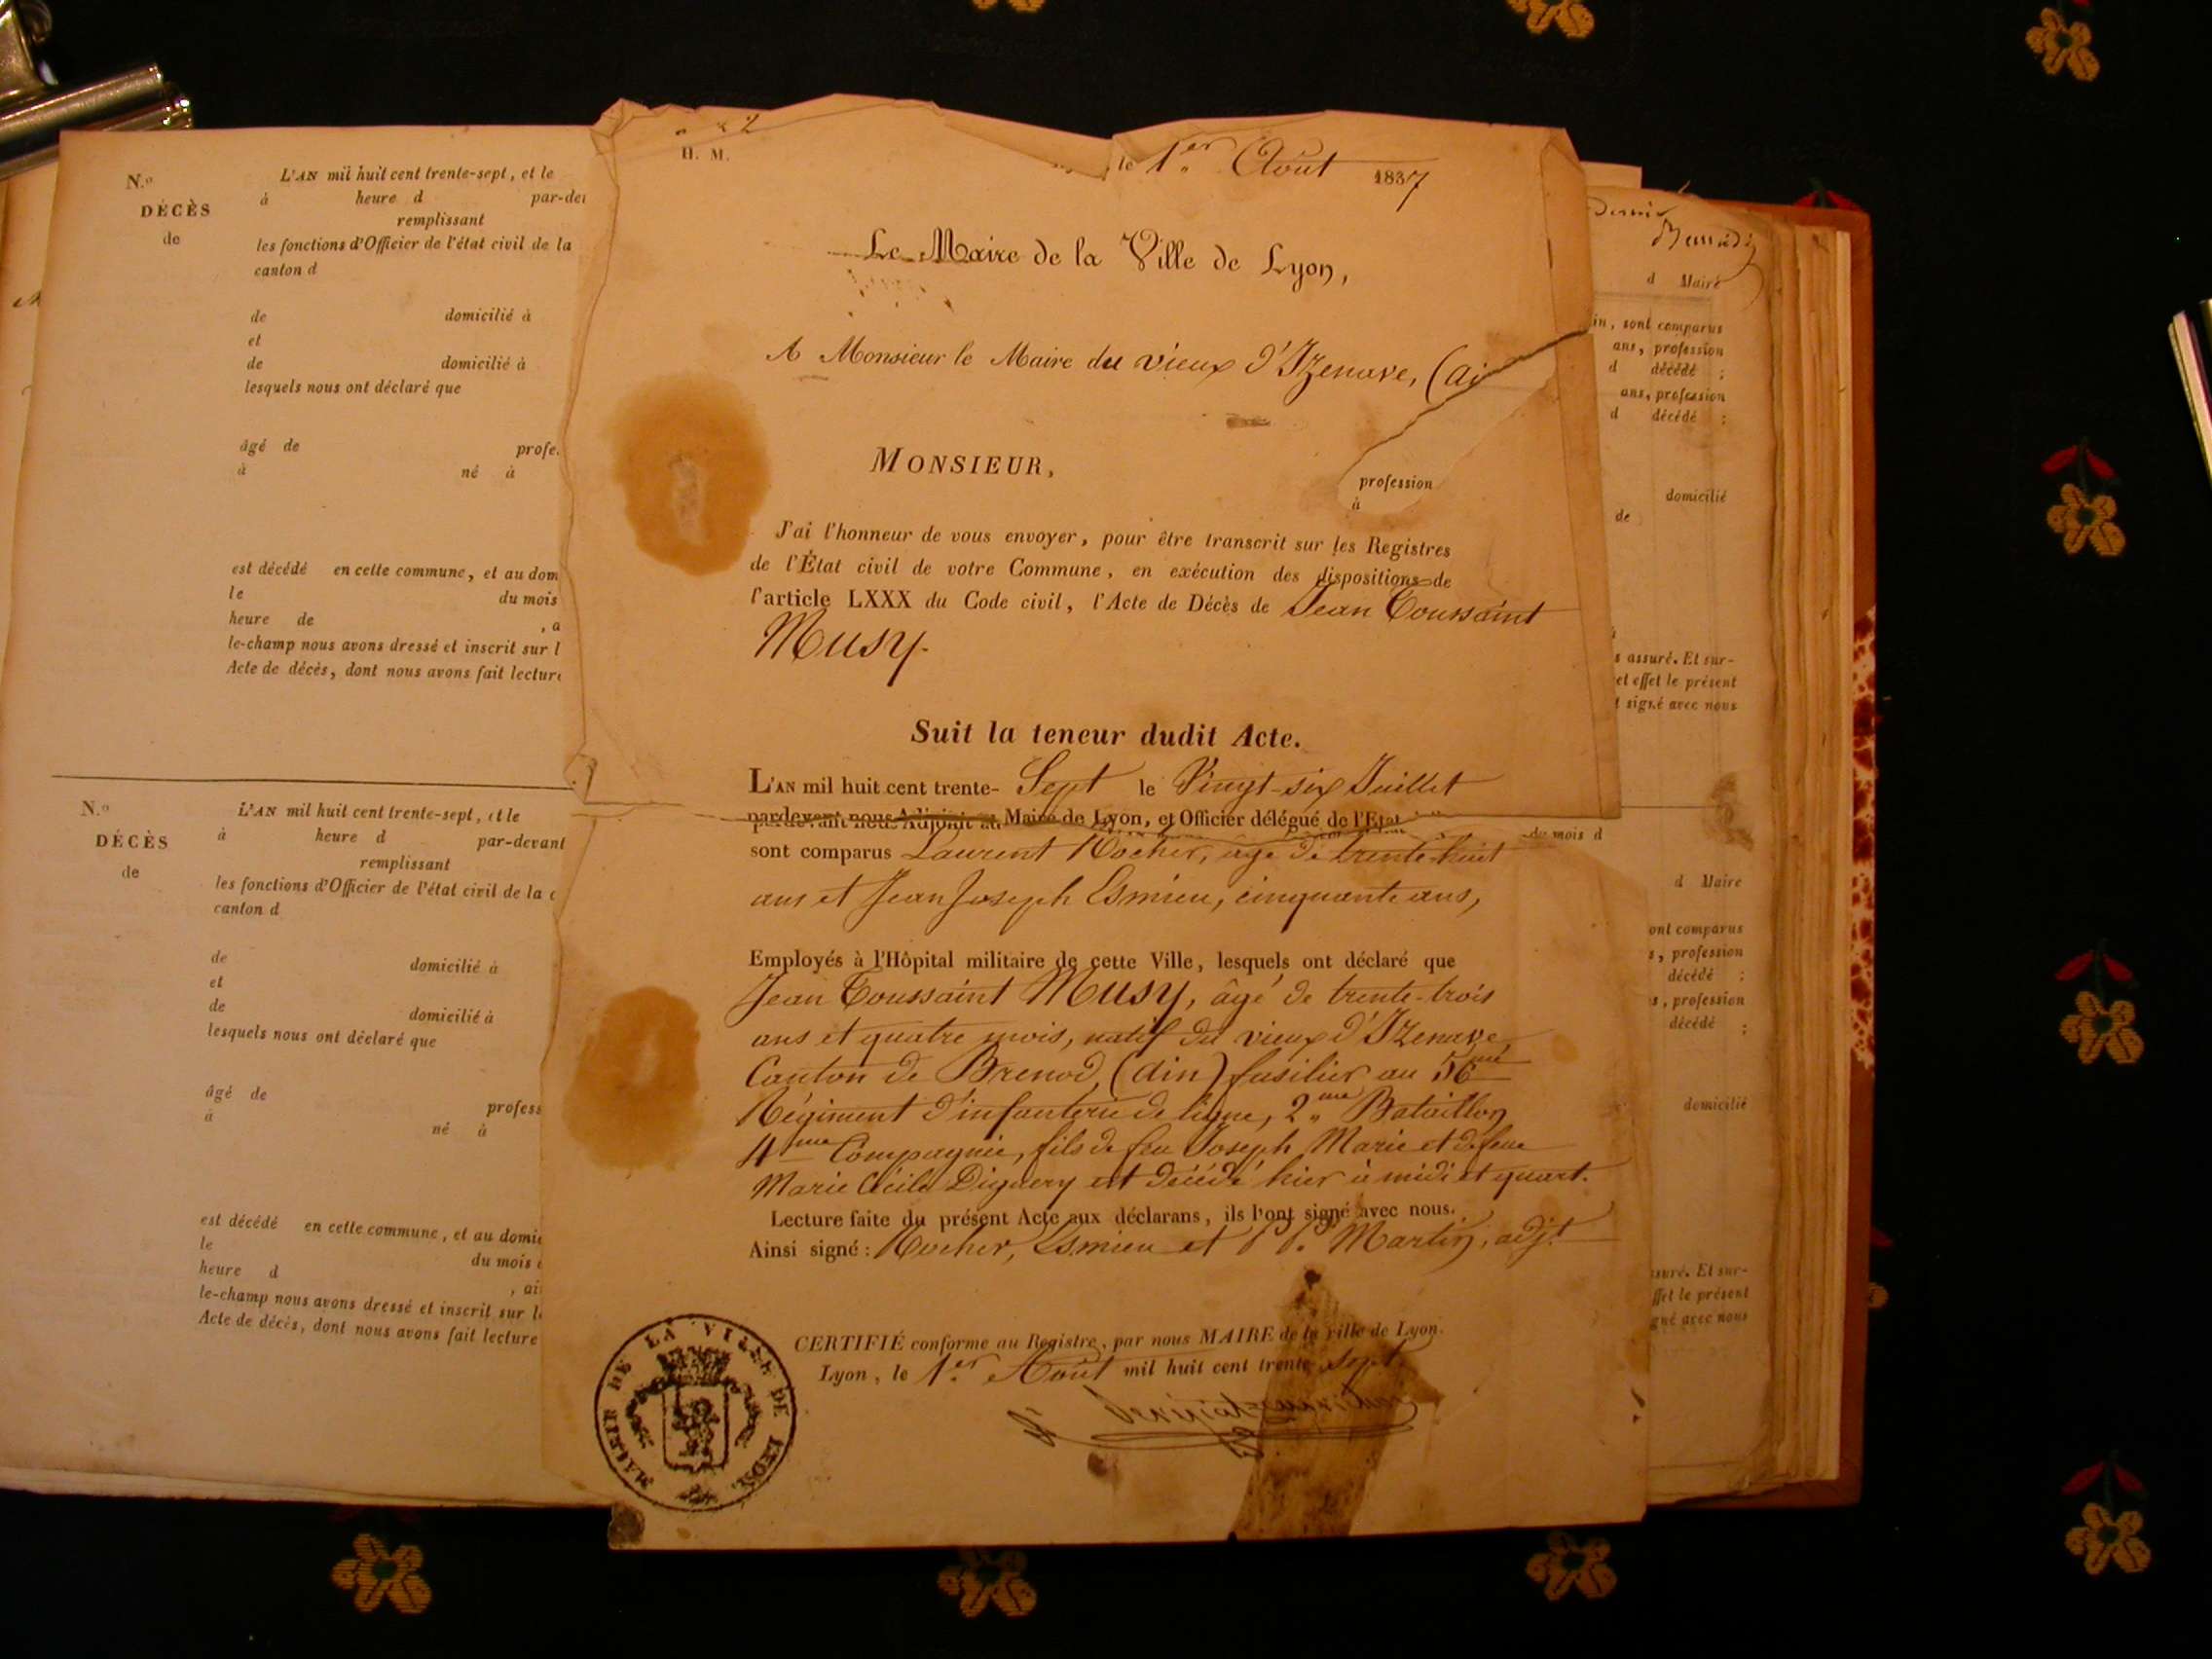 N.º
DÉCÈS
de
L'AN mil huit cent trente-sept, et le
à heure d
remplissant
les fonctions d'Officier de l'état civil de la
canton d
de domicilié à
et
de domicilié à
lesquels nous ont déclaré que
âgé de
à né à
est décédé en cette commune, et au
le du mois
heure de
le-champ nous avons dressé et inscrit sur
Acte de décès, dont nous avons fait
N.º
DÉCÈS
de
L'AN mil huit cent trente-sept, et le
à heure d par-devant
remplissant
les fonctions d'Officier de l'état civil de la
canton d
de domicilié à
et
de domicilié à
lesquels nous ont déclaré que
âgé de
à né à
est décédé en cette commune, et au
le du mois
heure d
le-champ nous avons dressé et inscrit sur
Acte de décès, dont nous avons fait lecture
H. M.
le 1.er Août 1837
Le Maire de la Ville de Lyon,
A Monsieur le Maire du vieux d'Izenave,
MONSIEUR,
profession
à
J'ai l'honneur de vous envoyer, pour être transcrit sur les Registres
de l'État civil de votre Commune, en exécution des dispositions de
l'article LXXX du Code civil, l'Acte de Décès de Jean Toussaint
Musy.
Suit la teneur dudit Acte.
L'AN mil huit cent trente-Sept le Vingt-six Juillet
pardevant nous Adjoint au Maire de Lyon, et Officier délégué de l'Etat
sont comparus Laurent Rocher, âgé de trente-huit
ans et Jean Joseph Esmieu, cinquante ans,
Employés à l'Hôpital militaire de cette Ville, lesquels ont déclaré que
Jean Toussaint Musy, âgé de trente-trois
ans et quatre mois, natif du vieux d'Izenave,
Canton de Brenod, (ain) fusilier au 56me
Régiment d'infanterie de ligne, 2.me Bataillon
4me Compagnie, fils de feu Joseph Marie et de feue
Marie Cécile est décédé hier à midi et quart.
Lecture faite du présent Acte aux déclarans, ils l'ont signé avec nous.
Ainsi signé : Rocher, Esmieu et Martin, adj.t
CERTIFIÉ conforme au Registre, par nous MAIRE de la ville de Lyon.
Lyon, le 1.er Août mil huit cent trente sept.
MAIRIE DE LA VILLE DE LYON.
d Maire
sont comparus
ans, profession
d décédé ;
ans, profession
d décédé ;
domicilié
de
assuré. Et sur-
et effet le présent
signé avec nous
du mois d
d Maire
comparus
profession
décédé ;
profession
décédé ;
domicilié
Et sur-
le présent
avec nous